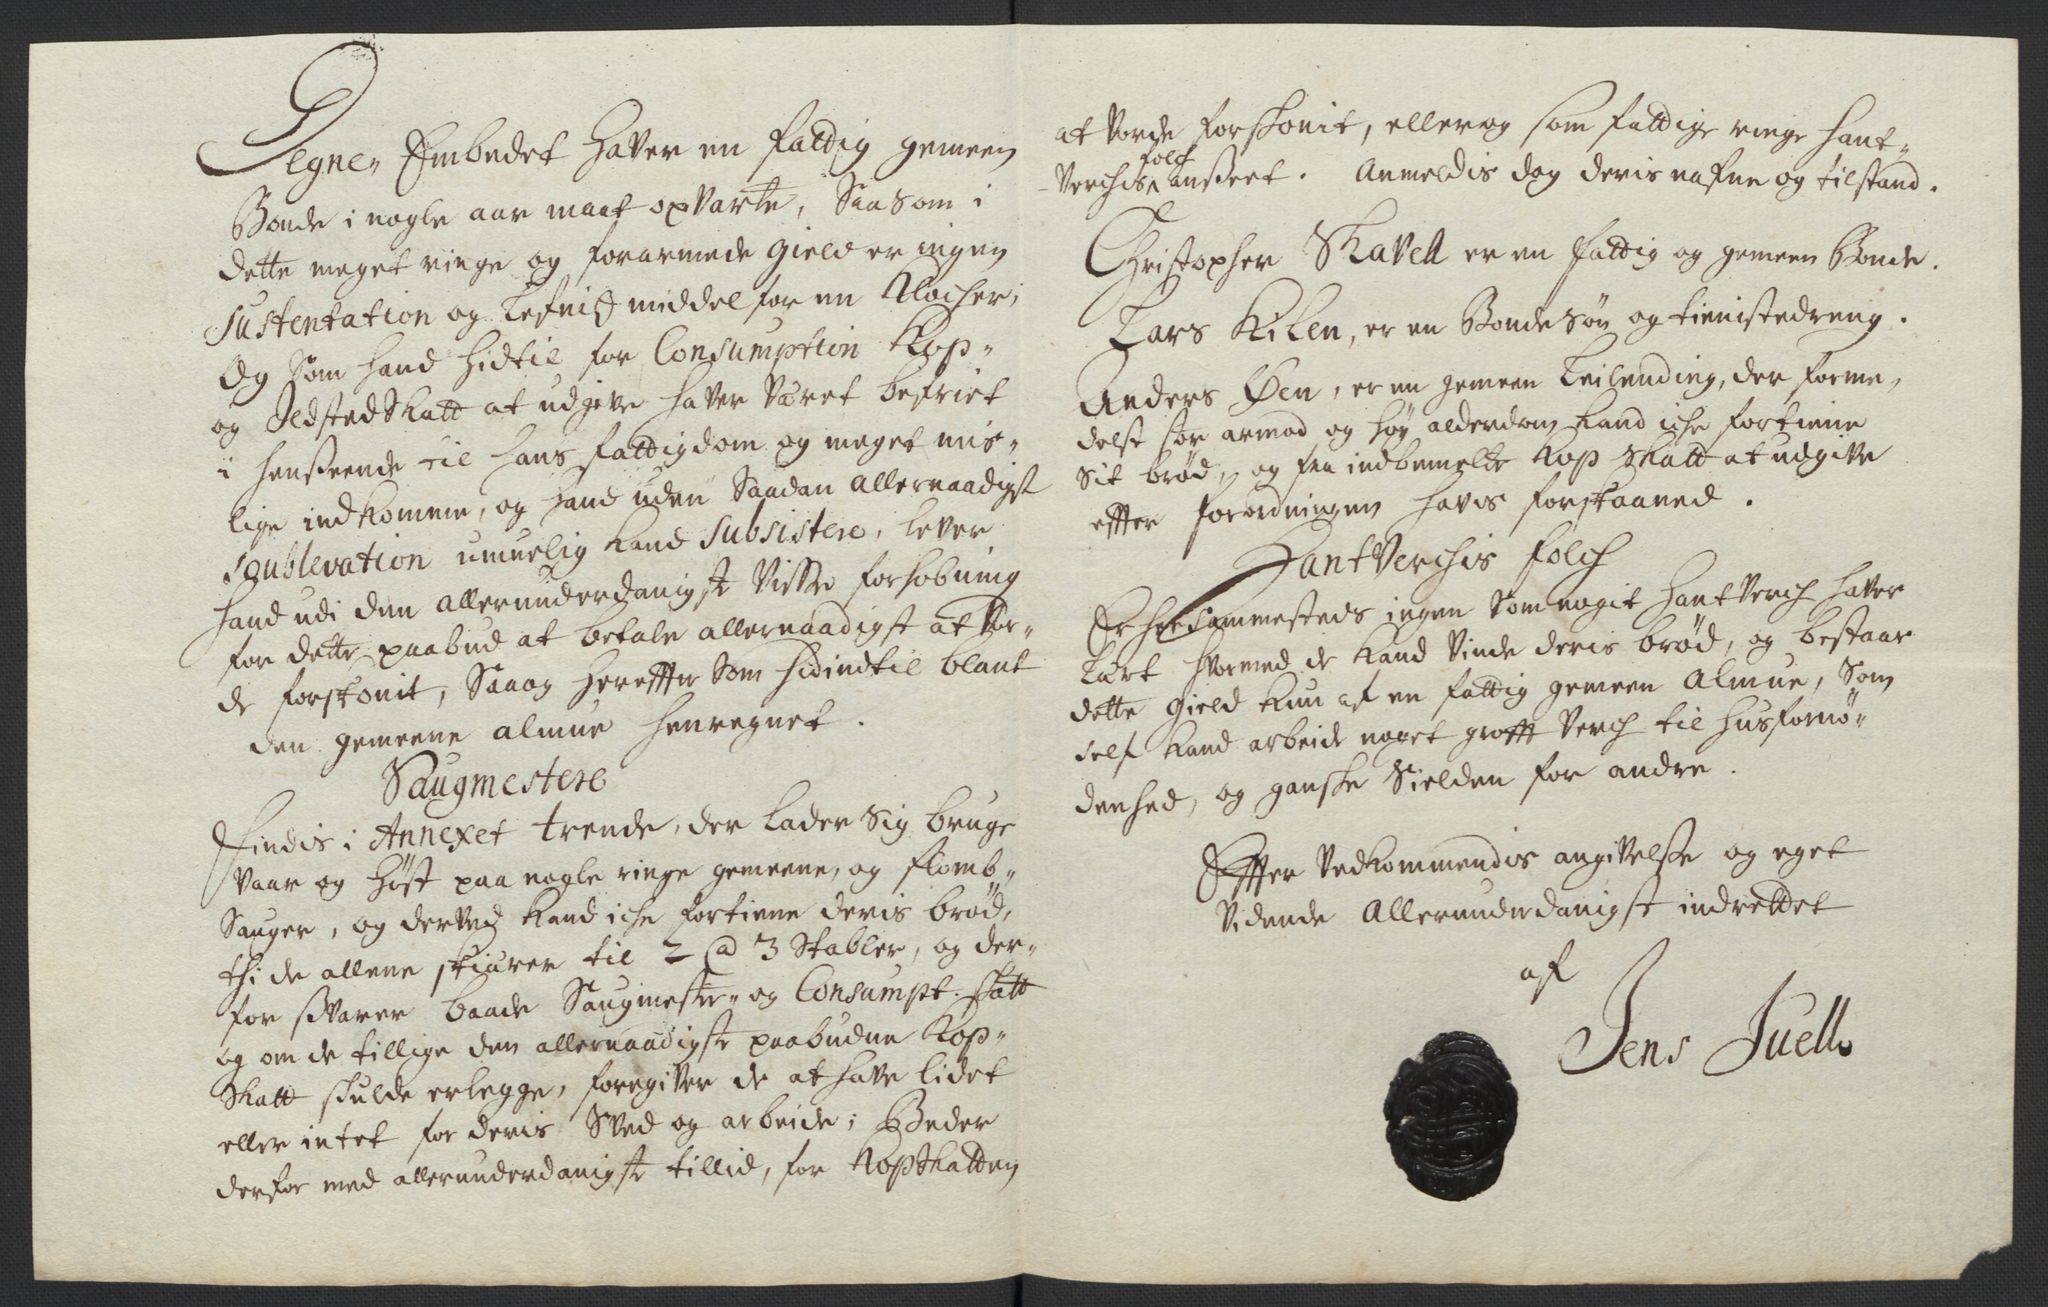 Degne- Embedet haver en fattig gemeen
Bonde i nogle aar maat opvarte, Saasom i
dette meget ringe og forarmede gield er ingen
Sustentation og Lefniß middel for en Klocher;
Og Som hand hidtil for Consumption Kop-
og Ildsted Skatt at udgive haver været befriet
i henseende til hans fattigdom og meget mis-
lige indkomme, og hand uden Saadan allernaadigst
soublevation umuelig kand subsistere, lever
hand udi den allerunderdanigste Visse forhobning
for dette paabud at betale allernaadigst at Vor-
de forskonit, Saaog herefter Som hidindtil blant
den gemeene almue henregnet.
Saugmestere
Findis i Annexet trende, der lader Sig bruge
Vaar og Høst paa nogle ringe gemeene, og flomb-
Sauger, og derved kand iche fortiene deris brød,
thi de allene skiærer til 2 a 3 Stabler, og der-
for svarer baade Saugmester- og Consumpt. skatt
og om de tillige den allernaadigste paabudne Kop-
Skatt skulde erlegge, foregiver de at have lidet
eller intet for deris Sved og arbeide; Beder
derfor med allerunderdanigste tillid, for KopSkatten
at Vorde forskonit, ellerog som fattige ringe Hant-
Verchis folch anseet. Anmeldis dog deris nafne og tilstand.
Christopher Skavell er en fattig og gemeen Bonde.
Lars Kilen, er en Bonde Søn og tienistedreng.
Anders Øen, er en gemeen Leilending, der forme-
delst stor armod og høy alderdom kand iche fortiene
Sit brød, og fra indbemelte Kop Skatt at udgive
effter forordningen havis forskaaned.
HantVerchis folch
Er her sammesteds ingen Som nogit HantVerch haver
Lært hvormed de kand Vinde deris brød, og bestaar
dette gield kun af en fattig gemeen Almue, Som
self kand arbeide noget grofft Verch til husfornø-
denhed, og ganske Sielden for andre.
Effter Vedkommendis angivelse og eget
Vidende Allerunderdanigst indrettet
af
Jens Juell